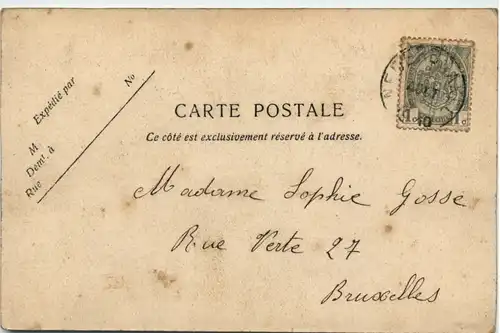 Expédié par
No
M
Demt. à
Rue
CARTE POSTALE
Ce côté est exclusivement réservé à l'adresse.
1 c 1 c
10
Madame Sophie Gosse
Rue Verte 27
Bruxelles